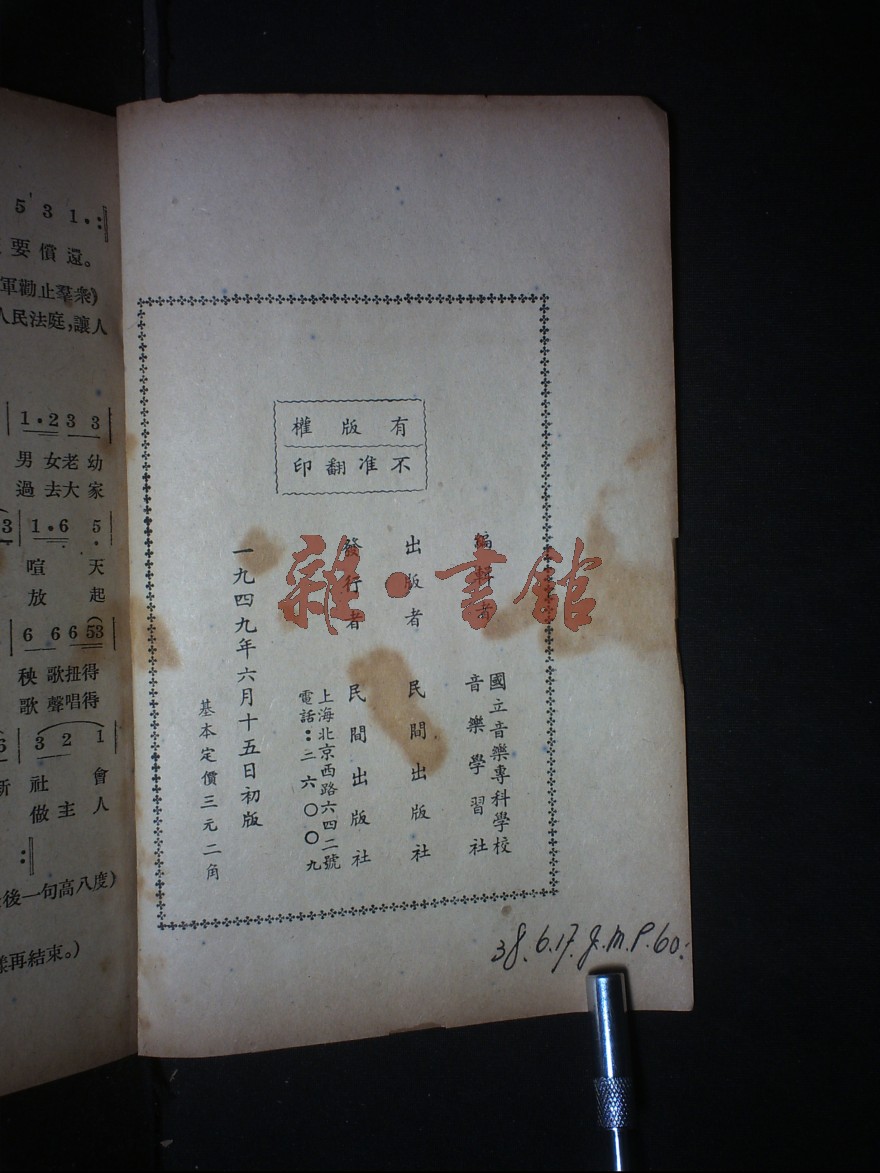 有版權
不准翻印
編輯者 國立音樂專科學校
音樂學習社
出版者 民間出版社
發行者 民間出版社
上海北京西路六四二號
電話：三六〇〇九
一九四九年六月十五日初版
基本定價三元二角
38.6.17.J.M.P.60.
雜·書館
5 3 1
要償還。
軍勸止羣衆)
人民法庭,讓人
1·2 3 3
男女老幼
過去大家
3 1·6 5
喧天
放起
6 6 6 53
秧歌扭得
歌聲唱得
6 3 2 1
新社會
做主人
後一句高八度)
樣再結束。)